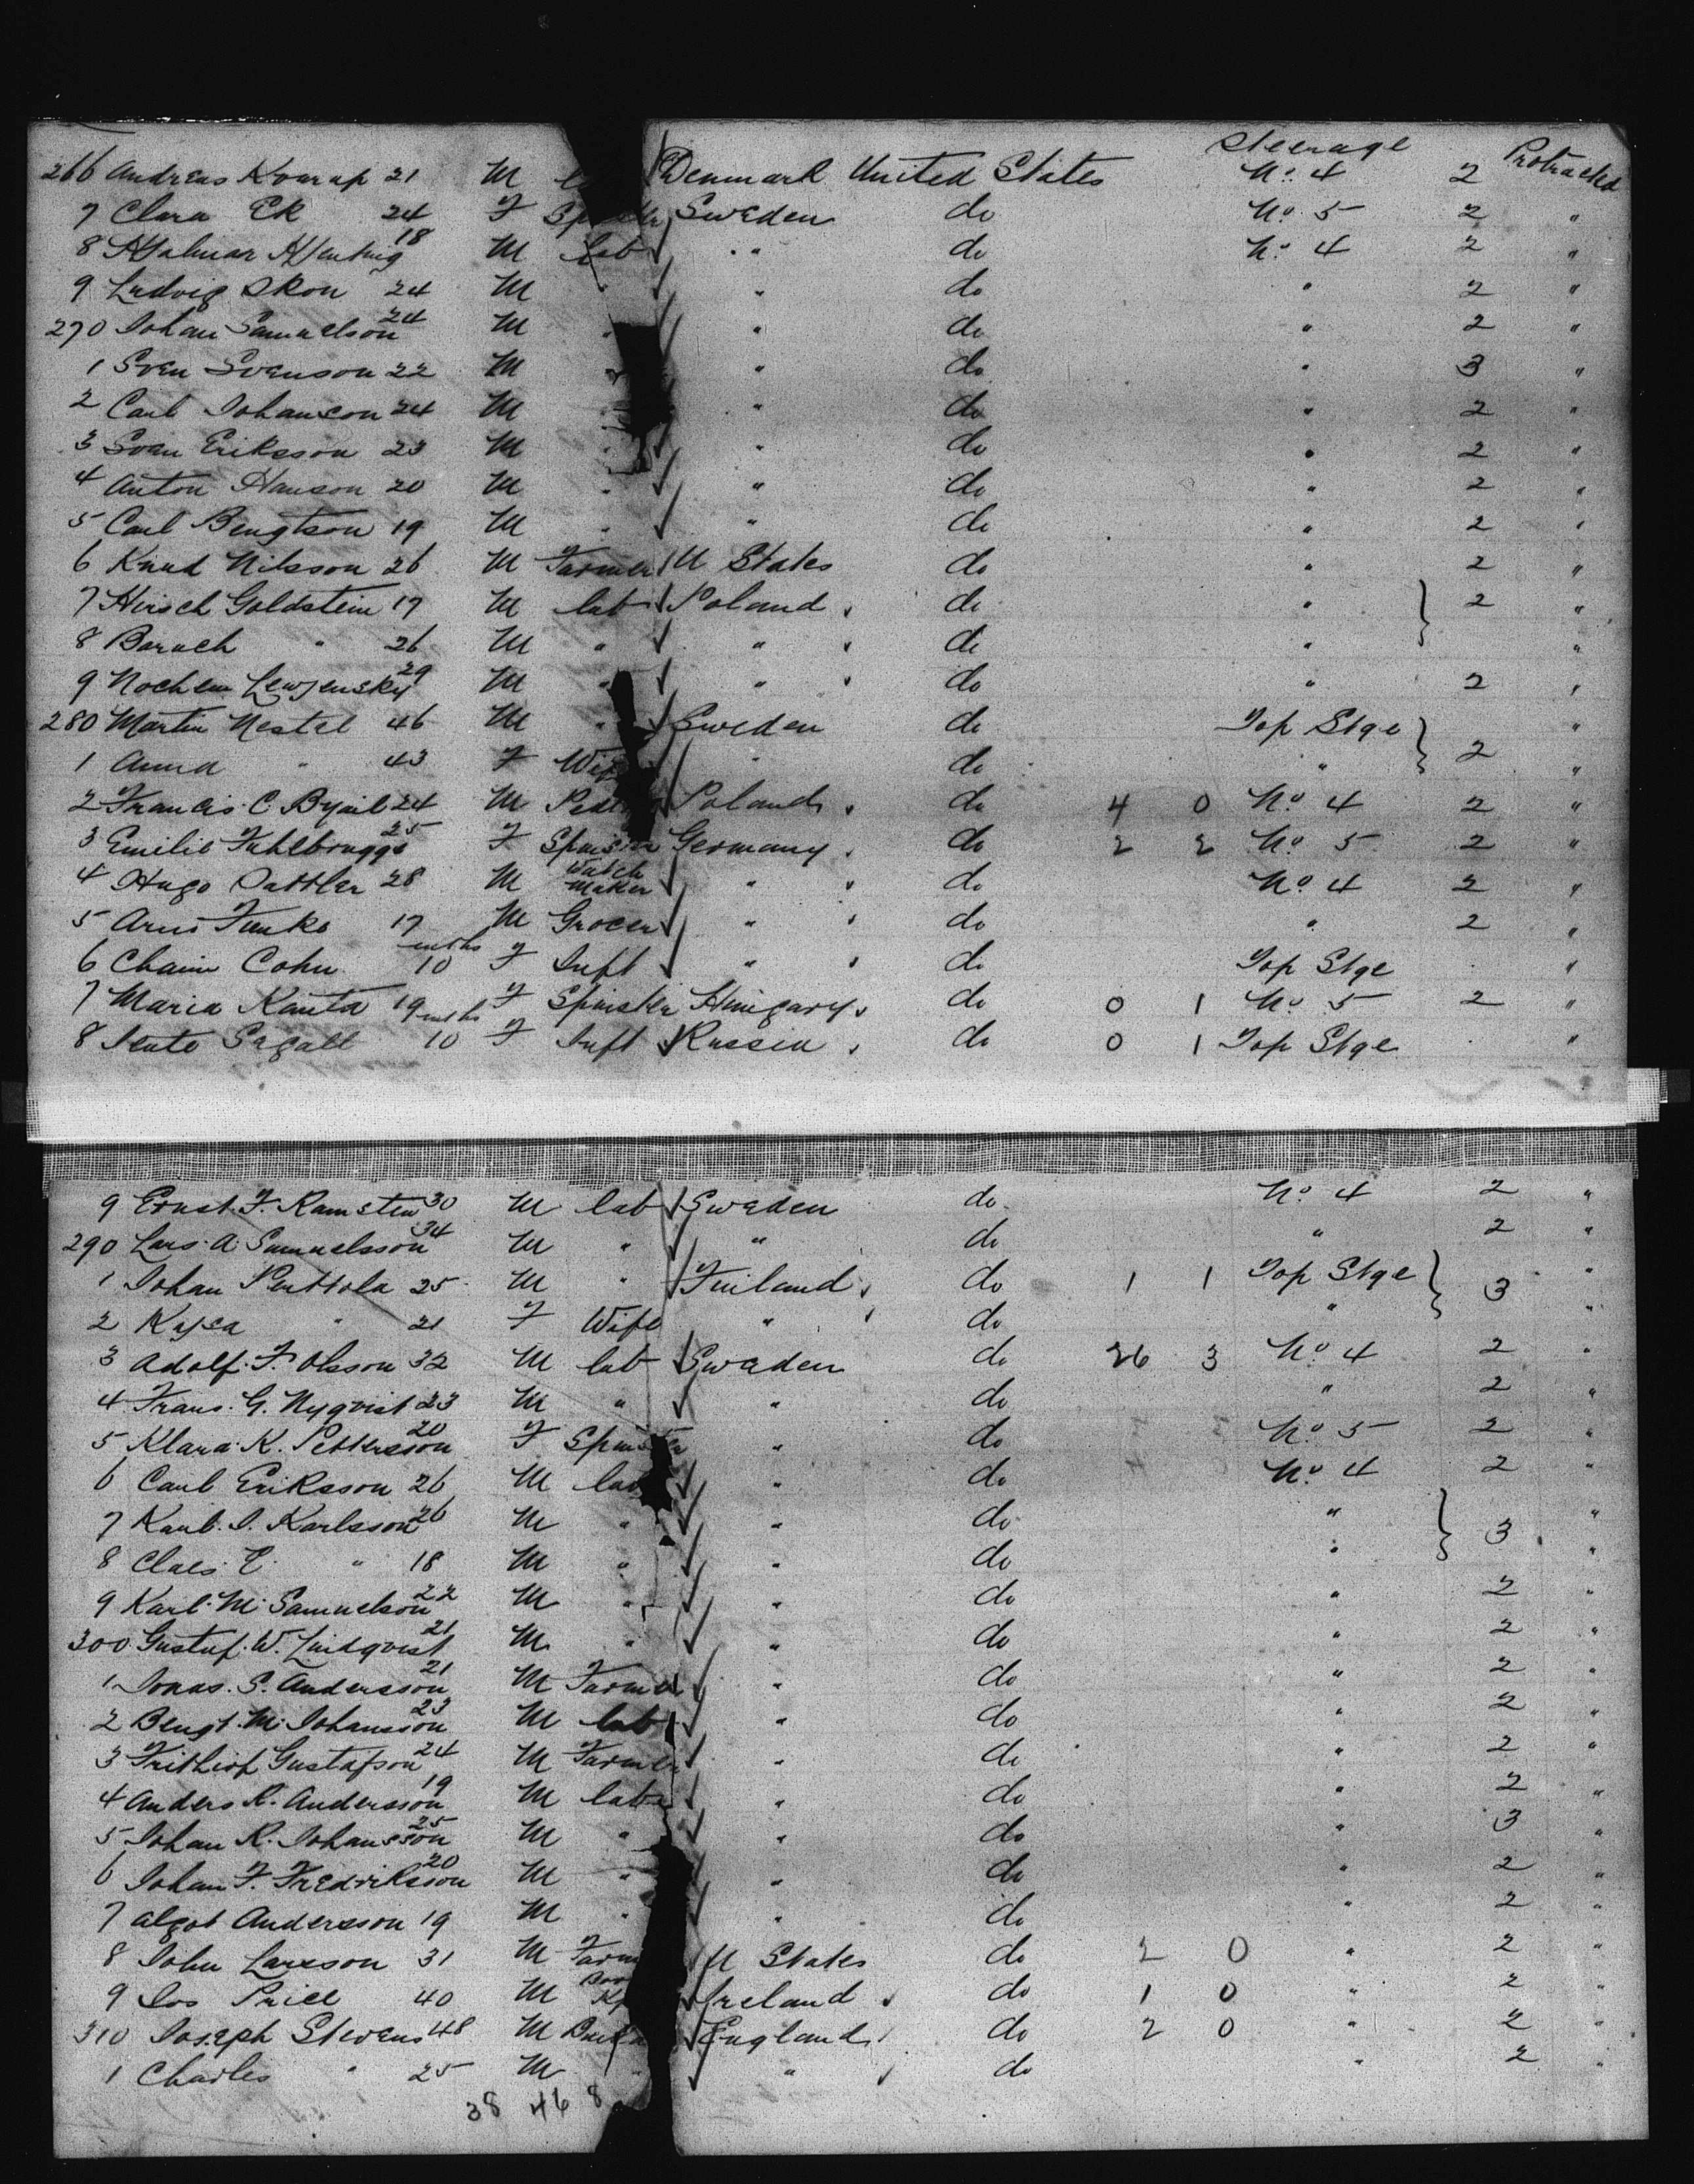 Steerage
266 Andreas Kvarup 21 M Denmark United States No. 4 2 Protracted
7 Clara Ek 24 F Sweden do No. 5 2 "
8 Hjalmar 18 M lab " do No. 4 2 "
9 Ludvig Skon 24 M " " do " 2 "
270 Johan Samuelson 24 M " " do " 2 "
1 Sven Svenson 22 M " " do " 3 "
2 Carl Johanson 24 M " " do " 2 "
3 Sven Eriksson 23 M " " do " 2 "
4 Anton Hanson 20 M " " do " 2 "
5 Carl Bengtson 19 M " " do " 2 "
6 Knud Nilsson 26 M Farmer U States do " 2 "
7 Hirsch Goldstein 17 M lab Poland do " } 2 "
8 Baruch " 26 M " " do " "
9 Nochem 29 M " " do " 2 "
280 Martin Nestel 46 M " Sweden do Top Stge } "
1 Anna " 43 F Wife " do " 2 "
2 Francis C 24 M Poland do 4 0 No. 4 2 "
3 Emilie Fuhlbrugge 25 F Spinster Germany do 2 2 No. 5 2 "
4 Hugo Sattler 28 M Watch Maker " do No. 4 2 "
5 Funke 17 M Grocer " do " 2 "
6 Chaim Cohn 10 mths F Inft " do Top Stge "
7 Maria Kanta 19 F Spinster Hungary do 0 1 No. 5 2 "
8 Segall 10 mths F Inft Russia do 0 1 Top Stge "
9 Ernst F. Ramsten 30 M lab Sweden do No. 4 2 "
290 Lars A. Samuelsson 34 M " " do " 2 "
1 Johan Penttola 25 M " Finland do 1 1 Top Stge } 3 "
2 Kajsa " 21 F Wife " do " "
3 Adolf F. Olsson 32 M lab Sweden do 26 3 No. 4 2 "
4 Frans G. Nyqvist 23 M " " do " 2 "
5 Klara K. Pettersson 20 F Spinster " do No. 5 2 "
6 Carl Eriksson 26 M lab " do No. 4 2 "
7 Karl J. Karlsson 26 M " " do " } 3 "
8 Claes E. " 18 M " " do " "
9 Karl M. Samuelson 22 M " " do " 2 "
300 Gustaf W. Lindqvist 21 M " " do " 2 "
1 Jonas S. Andersson 21 M Farmer " do " 2 "
2 Bengt M. Johansson 23 M lab " do " 2 "
3 Frithiof Gustafson 24 M Farmer " do " 2 "
4 Anders R. Andersson 19 M lab " do " 2 "
5 Johan R. Johansson 25 M " " do " 3 "
6 Johan F. Fredriksson 20 M " " do " 2 "
7 Algot Andersson 19 M " " do " 2 "
8 John Larsson 31 M Farm U States do 2 0 " 2 "
9 Jos Price 40 M Ireland do 1 0 " 2 "
310 Joseph Stevens 48 M England do 2 0 " 2 "
1 Charles " 25 M " " do " 2 "
38 46 8